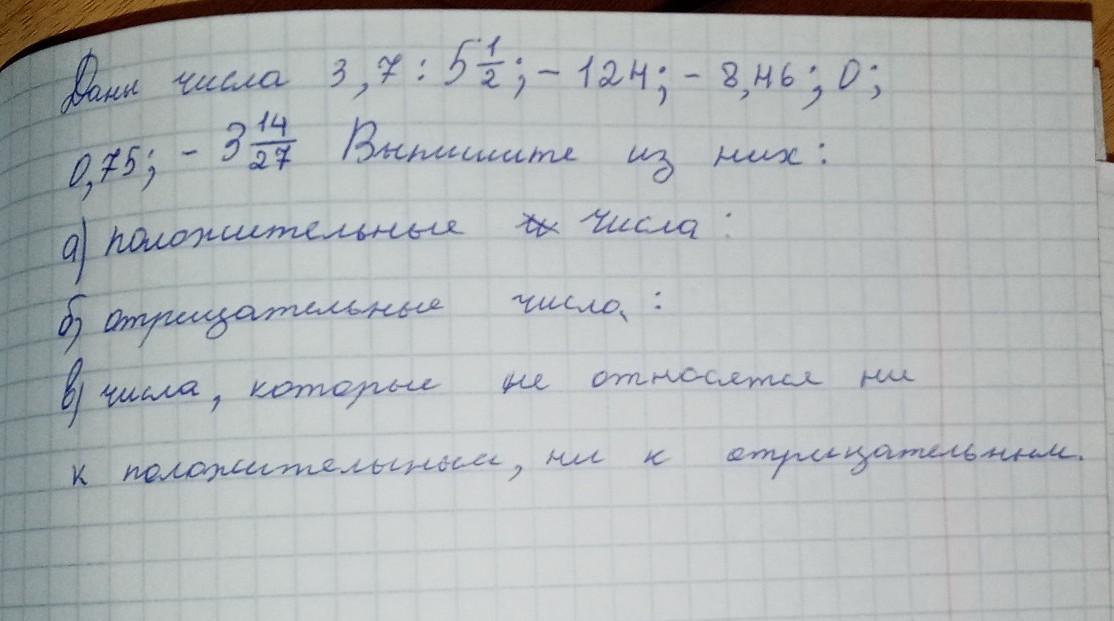 Даны числа 3,7 : 5 1/2; - 124; - 8,46; 0;
0,75; - 3 14/27 Выпишите из них:
а) положительные числа:
б) отрицательные числа:
в) числа, которые не относятся ни
к положительным, ни к отрицательным.